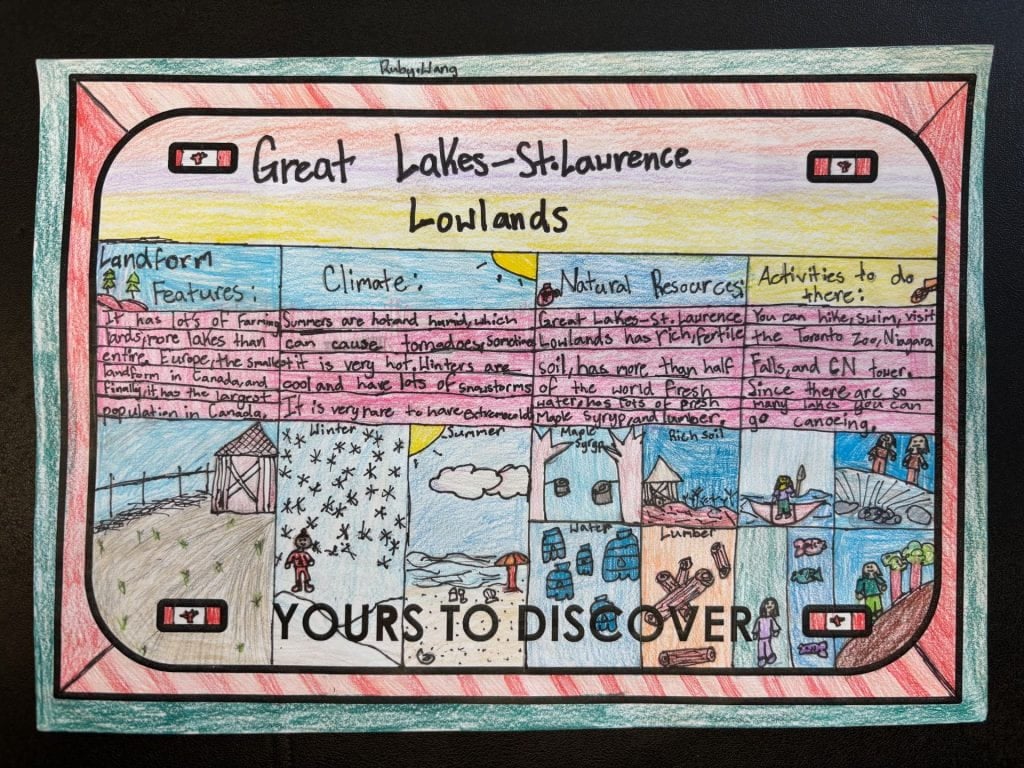 Ruby.Wang
Great Lakes-St.Lawrence
Lowlands
Landform
Features:
It has lots of Farming
lands,more lakes than
entire Europe,the smallest
landform in Canada,and
Finally,it has the largest
population in Canada.
Climate:
Summers are hot and humid,which
can cause tornadoes, Sometimes
it is very hot. Winters are
cool and have lots of snowstorms
It is very rare to have extreme cold
Natural Resources:
Great Lakes-St. Lawrence
Lowlands has rich,fertile
soil,has more than half
of the world fresh
water,has lots of fresh
Maple Syryp,and lumber.
Activities to do
there:
You can hike,swim, visit
the Toronto Zoo, Niagara
Falls, and CN tower.
Since there are so
many lakes you can
go canoeing.
Winter
Summer
Maple
Syryp
Rich soil
Water
Lumber
YOURS TO DISCOVER